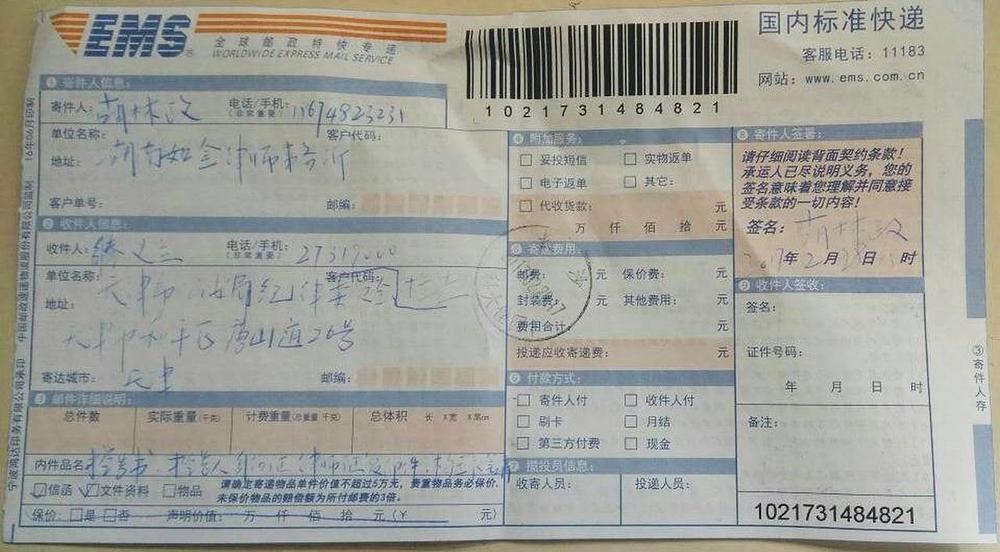 EMS 全球邮政特快专递
WORLDWIDE EXPRESS MAIL SERVICE
1021731484821
国内标准快递
客服电话：11183
网站：www.ems.com.cn
① 寄件人信息：
寄件人： 胡林政 电话/手机：（非常重要）
单位名称： 客户代码：
地址： 湖南如金律师事务所
客户单号： 邮编：
② 收件人信息
收件人： 电话/手机：（非常重要）
单位名称： 天津市 纪律 客户代码：
地址：
天津市和平区唐山道26号
寄达城市： 天津 邮编：
③ 邮件详细说明：
总件数 实际重量（千克） 计费重量（总重量 千克） 总体积 长 X宽 X高cm
内件品名： 控告书、控告人身份证、律师证
信函 文件资料 物品
请确定寄递物品单件价值不超过5万元，贵重物品务必保价，
未保价物品的赔偿额为所付邮费的3倍。
保价： 是 否 声明价值： 万 仟 佰 拾 元（￥ 元）
④ 附加服务：
妥投短信 实物返单
电子返单 其它：
代收货款： 元
万 仟 佰 拾 元
⑤ 寄递费用：
邮费： 元 保价费： 元
封装费： 元 其他费用： 元
费用合计： 元
投递应收寄递费： 元
⑥ 付款方式：
寄件人付 收件人付
刷卡 月结
第三方付费 现金
⑦ 揽投员信息：
收寄人员： 投递人员：
⑧ 寄件人签署：
请仔细阅读背面契约条款！
承运人已尽说明义务，您的
签名意味着您理解并同意接
受条款的一切内容！
签名： 胡林政
2017年2月 日 时
⑨ 收件人签收：
签名：
证件号码：
年 月 日 时
备注：
1021731484821
③寄件人存
宁波鸿达印务有限公司承印 中国邮政速递物流股份有限公司监制 16年06月印制